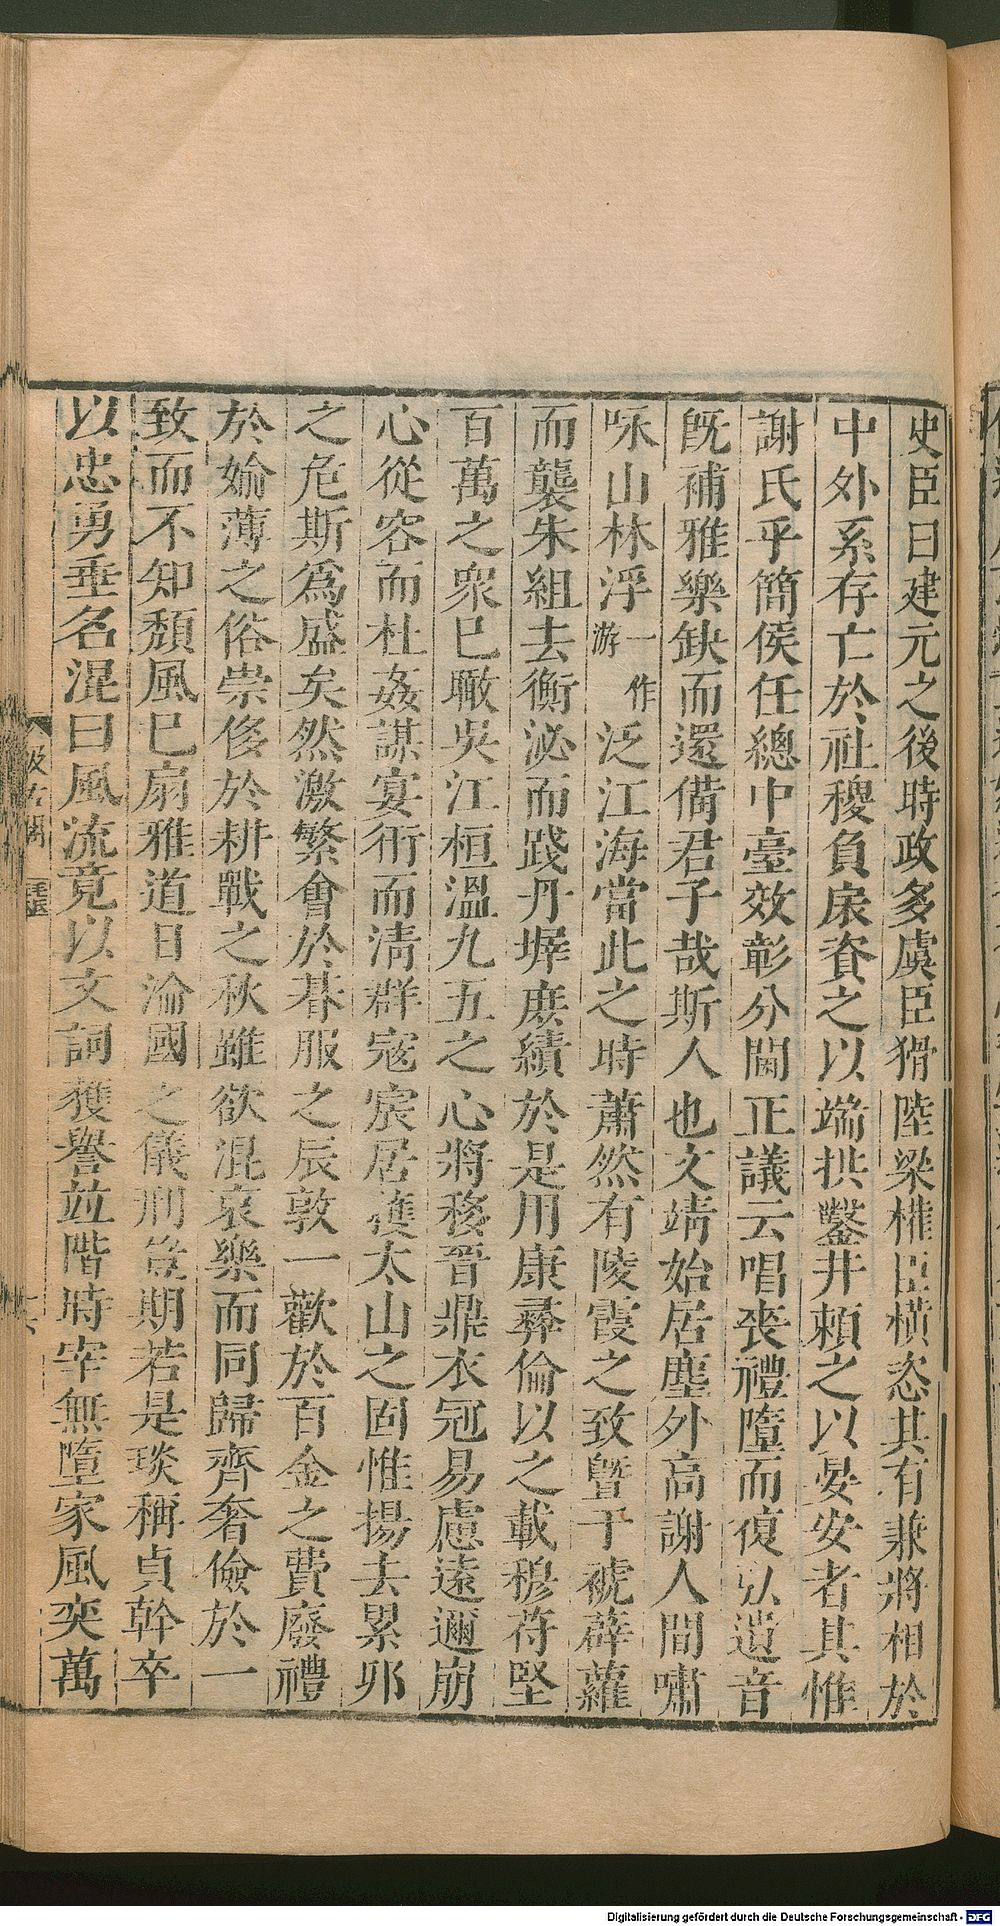 史臣曰建元之後時政多虞巨猾陸梁權臣橫恣其有兼將相於
中外系存亡於社稷負扆資之以端拱鑿井賴之以晏安者其惟
謝氏乎簡侯任總中臺效彰分閫正議云唱喪禮墮而復弘遺音
既補雅樂缺而還備君子哉斯人也文靖始居塵外高謝人間嘯
咏山林浮一作游泛江海當此之時蕭然有陵霞之致曁于褫薜蘿
而襲朱組去衡泌而踐丹墀庶績於是用康彝倫以之載穆苻堅
百萬之衆巳瞰吳江桓溫九五之心將移晉鼎衣冠易慮遠邇崩
心從容而杜姦謀宴衎而清群寇宸居獲太山之固惟揚去累卵
之危斯爲盛矣然激繁會於朞服之辰敦一歡於百金之費廢禮
於媮薄之俗崇侈於耕戰之秋雖欲混哀樂而同歸齊奢儉於一
致而不知頹風巳扇雅道日淪國之儀刑豈期若是琰稱貞幹卒
以忠勇垂名混曰風流竟以文詞獲譽並階時宰無墮家風奕萬
汲古閣
Digitalisierung gefördert durch die Deutsche Forschungsgemeinschaft - DFG